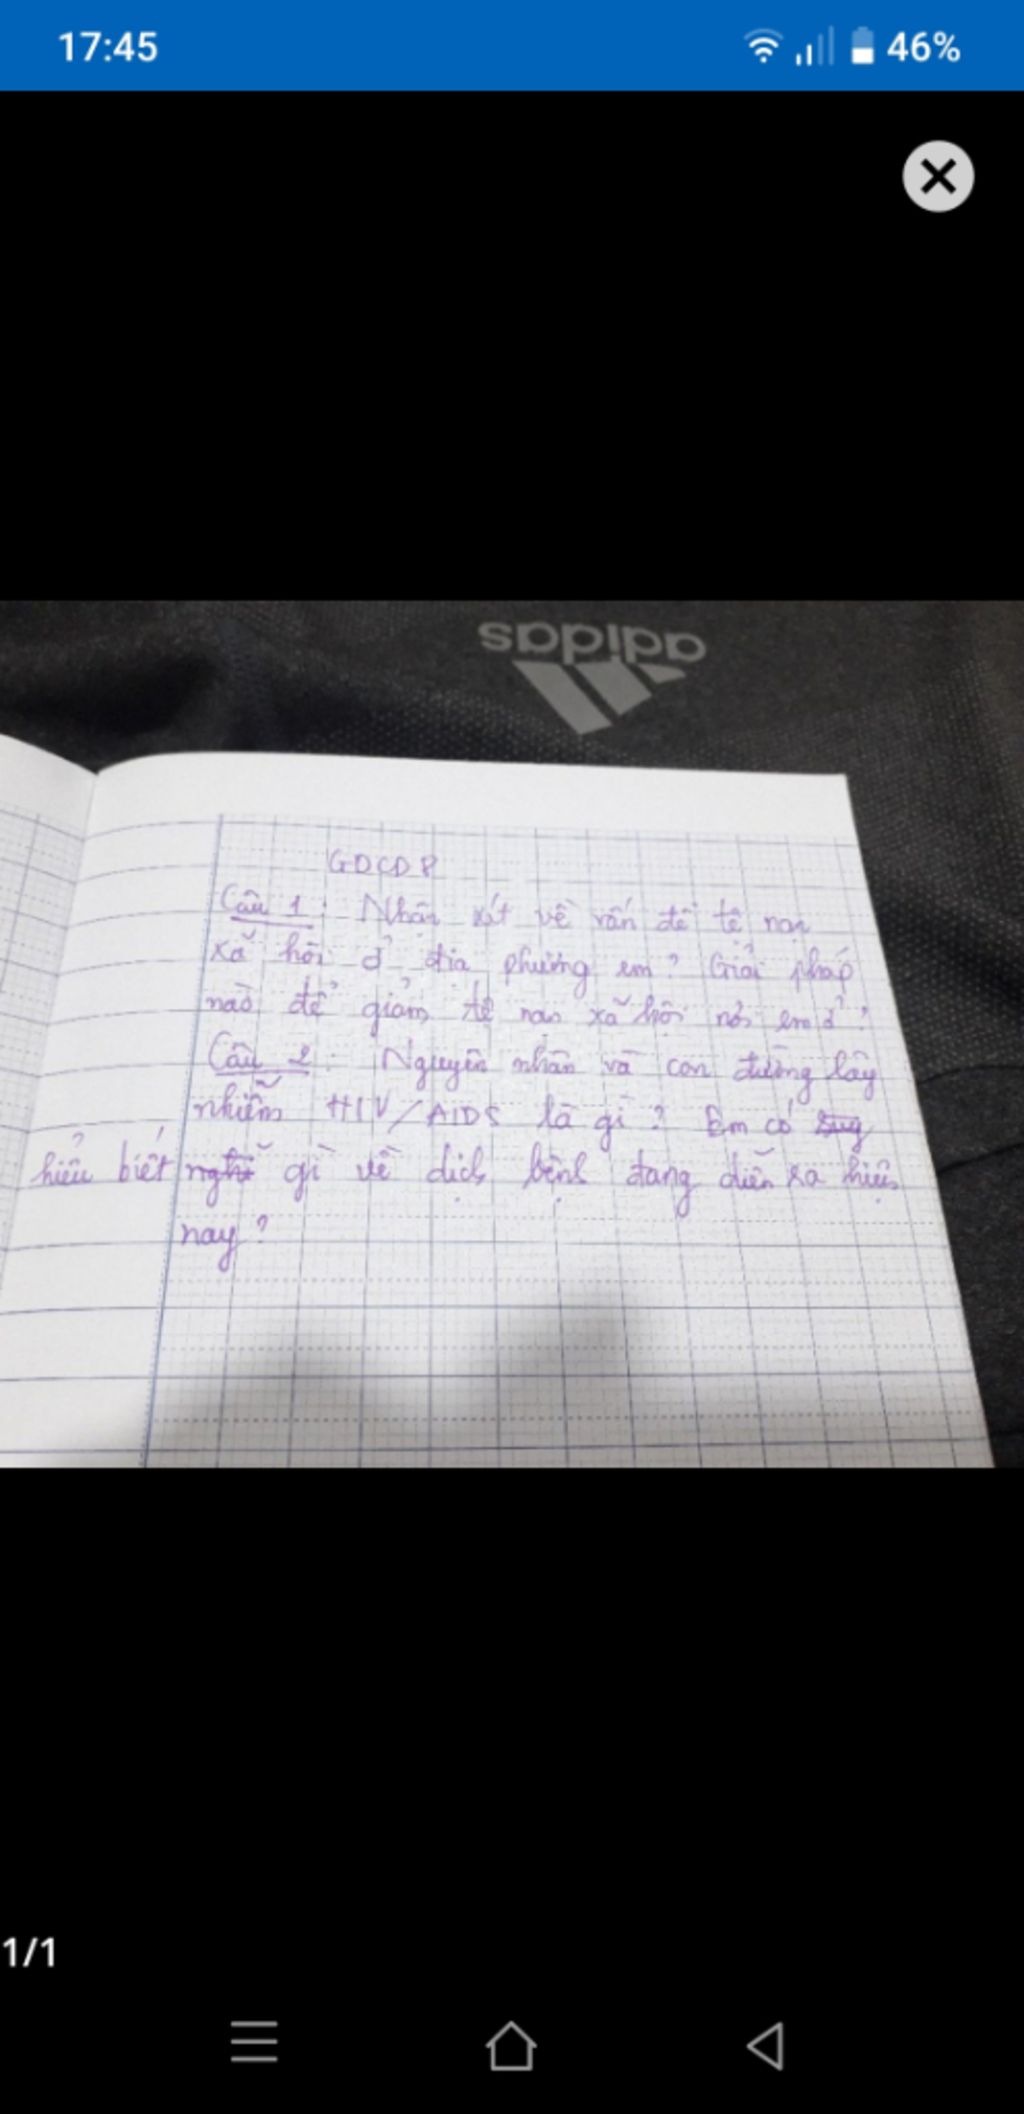 17:45
46%
adidas
GDCD 8
Câu 1: Nhận xét về vấn đề tệ nạn
xã hội ở địa phương em? Giải pháp
nào để giảm tệ nạn xã hội nơi em ở?
Câu 2: Nguyên nhân và con đường lây
nhiễm HIV/AIDS là gì? Em có
hiểu biết gì về dịch bệnh đang diễn ra hiện
nay?
1/1